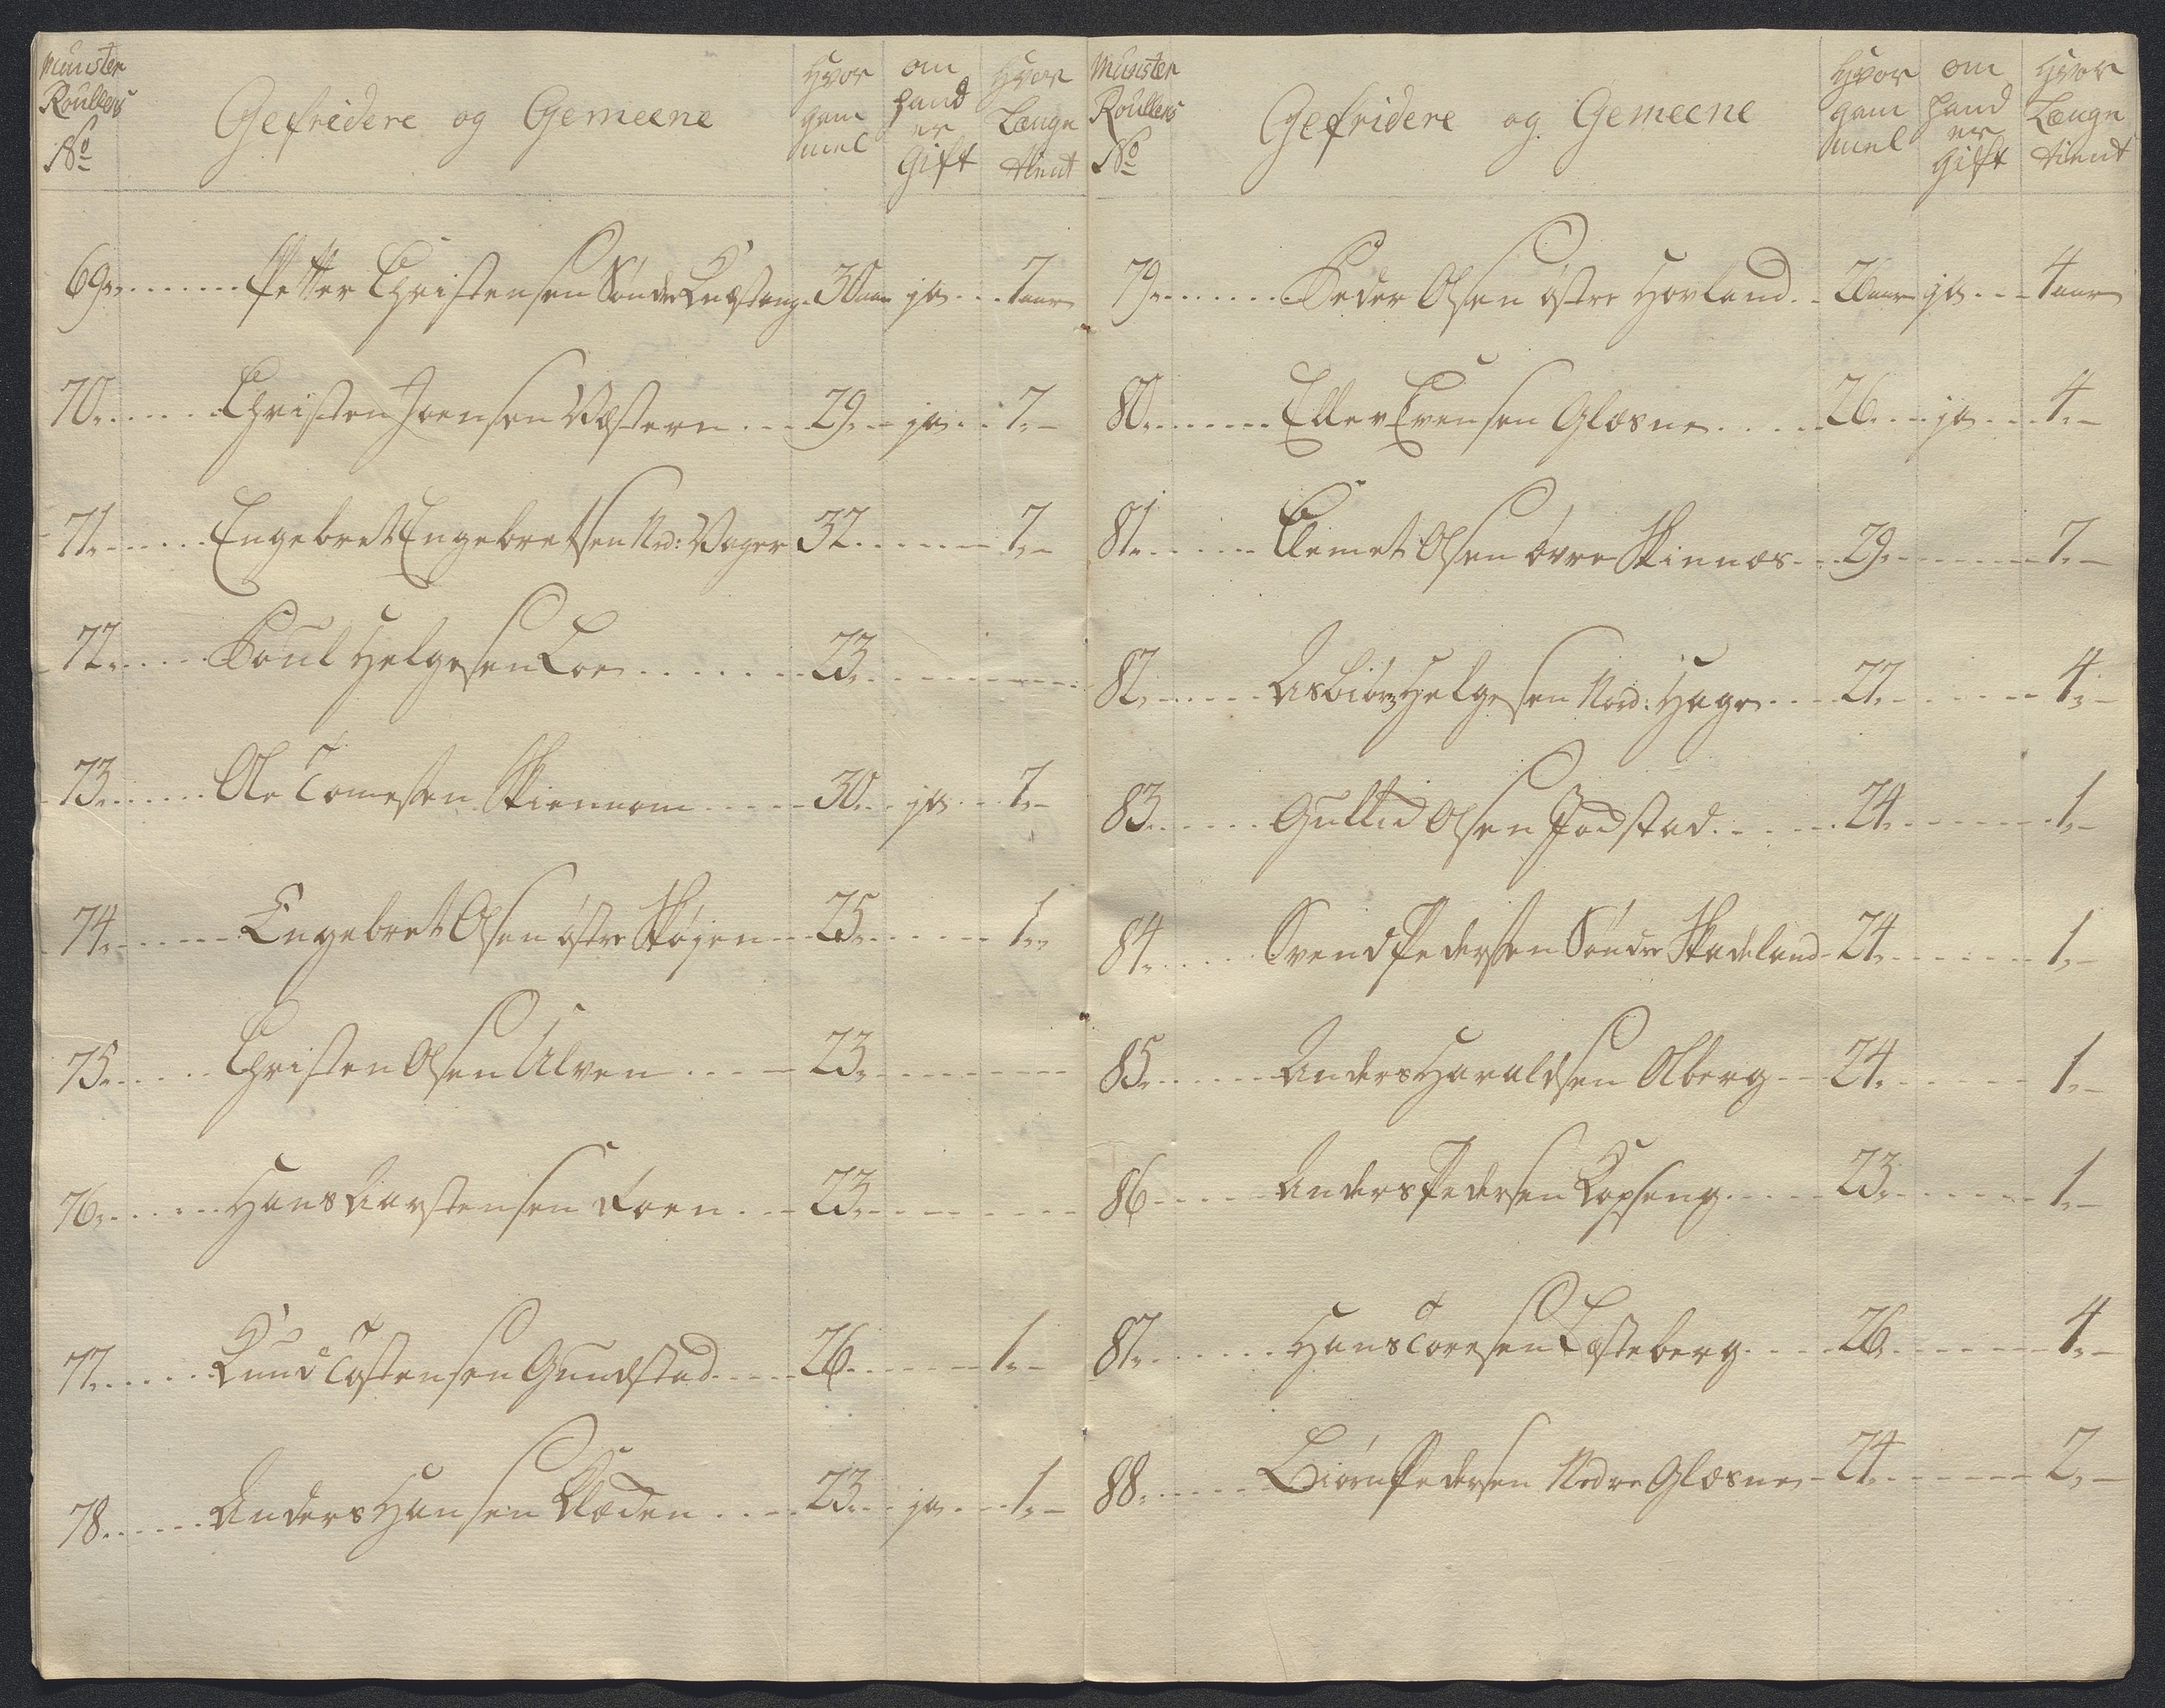 Munster Roullens No
Gefridere og Gemeene
Hvor gammel
om hand er Gift
Hvor Længe tient
69 Petter Christensen Søndr Knestang 30 aar ja 7 aar
70 Christen Joensen Western 29 ja 7
71 Engebret Engebretsen Ned: Wager 32 7
72 Poul Helgesen Loe 23
73 Ole Tomesen Skiennom 30 ja 7
74 Engebret Olsen østre Skøyen 25 1
75 Christen Olsen Ulven 23
76 Hans Karstensen Foen 23
77 Knud Tostensen Gundstad 26 1
78 Anders Hansen Kladen 23 ja 1
Munster Roullens No
Gefridere og Gemeene
Hvor gammel
om hand er gift
Hvor Længe tient
79 Peder Olsen østre Hovland 26 aar ja 4 aar
80 Eller Evensen Glæsne 26 ja 4
81 Clemet Olsen øvre Skinnæs 29 7
82 Asbiørn Helgesen Nord: Hage 27 4
83 Gullid Olsen Jodstad 24 1
84 Svend Pedersen Søndre Skadeland 24 1
85 Anders Haraldsen Olberg 24 1
86 Anders Pedersen Kopseng 23 1
87 Hans Toresen Losteberg 26 4
88 Biørn Pedersen Nedre Glæsne 24 2